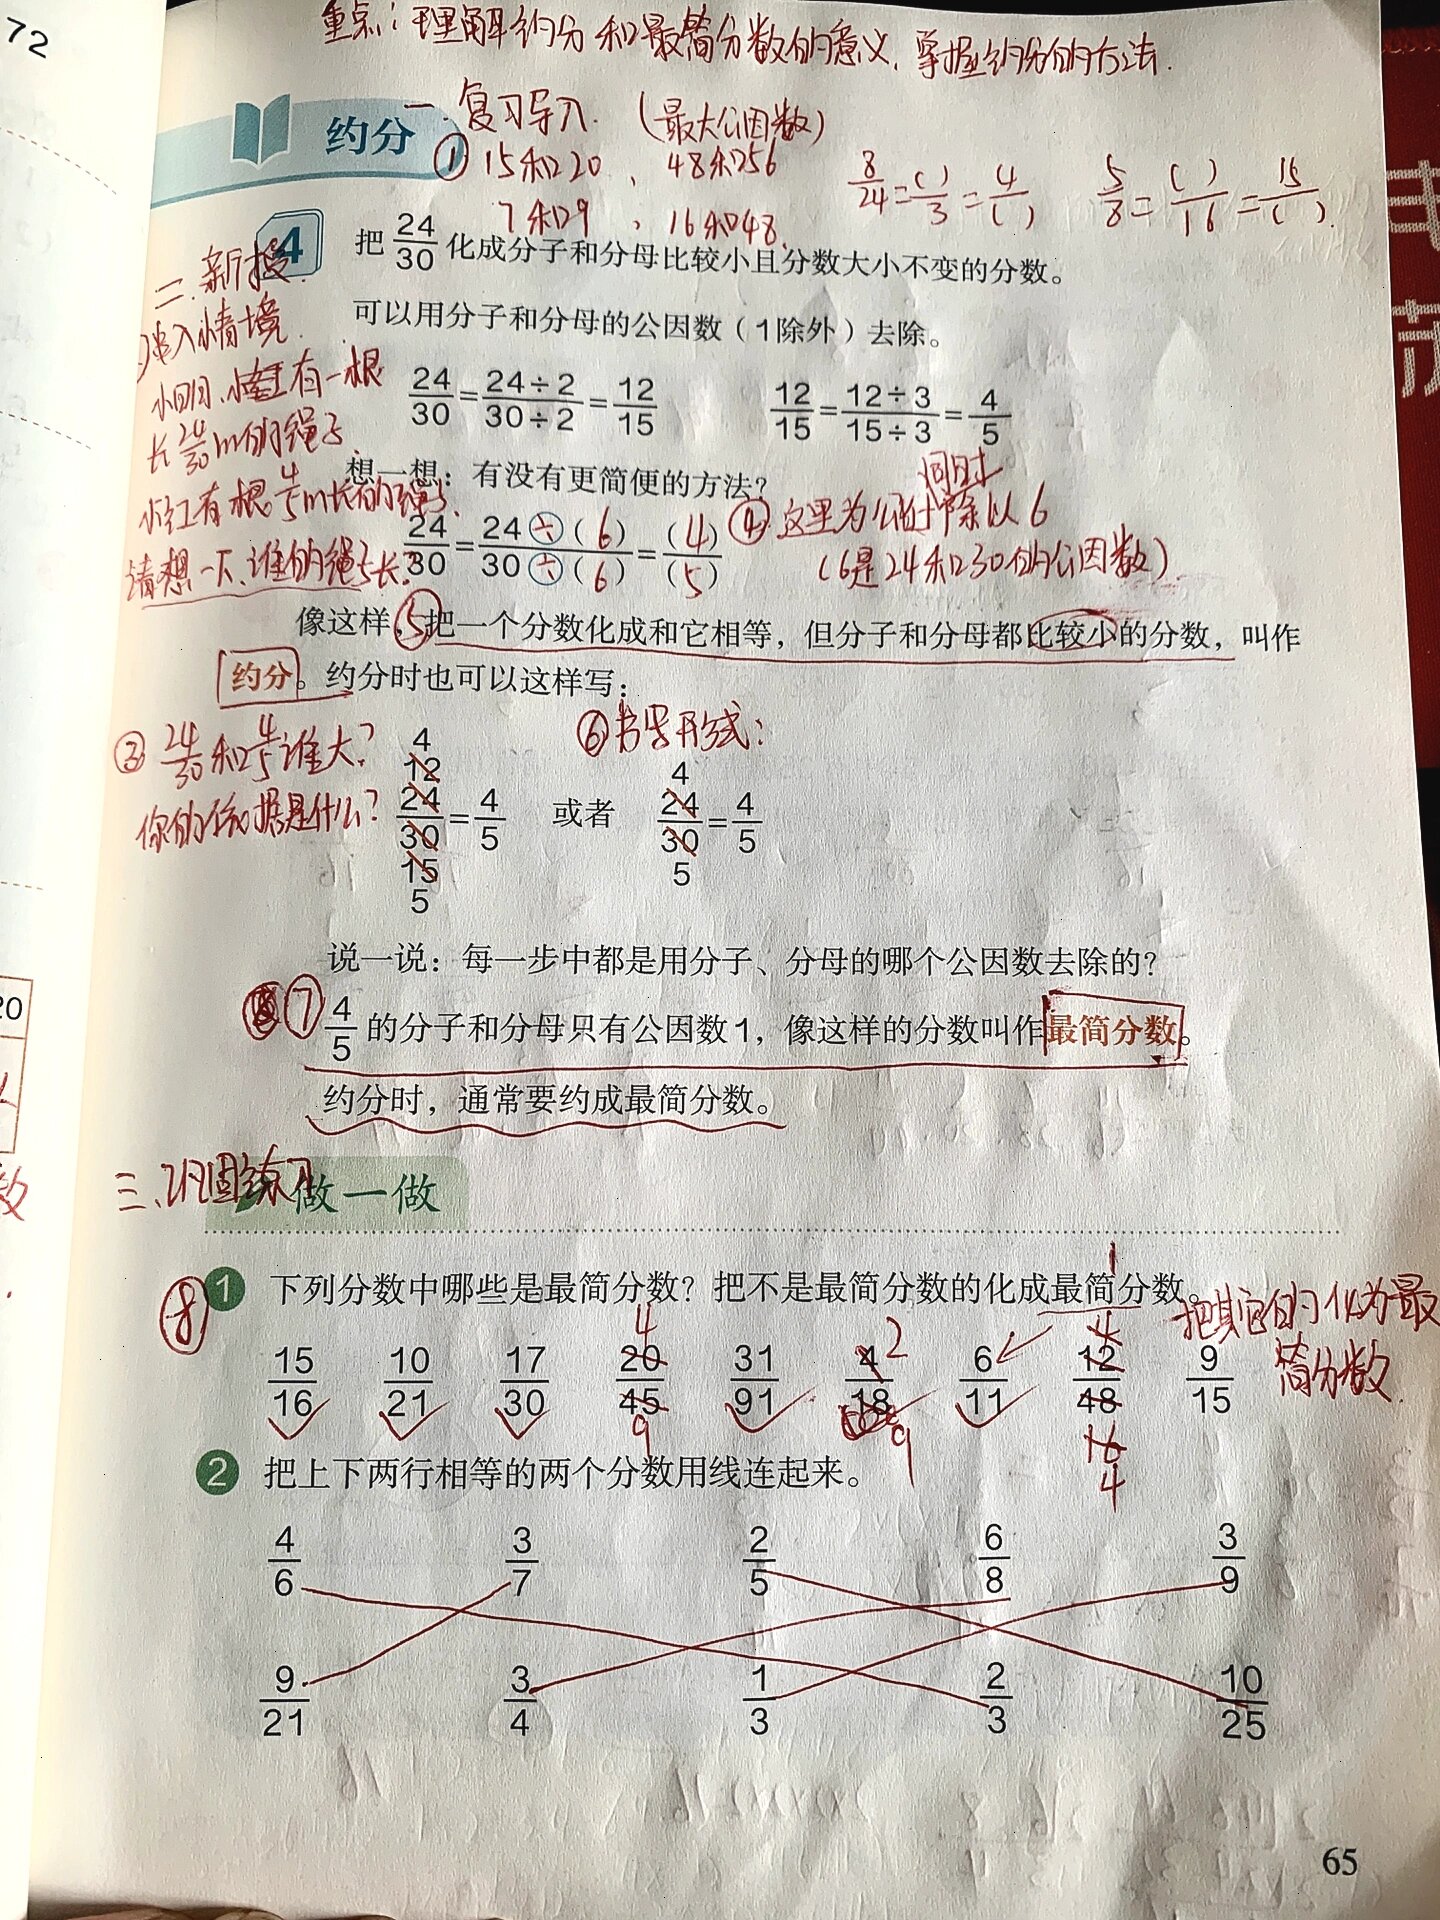 72
重点：理解约分和最简分数的意义、掌握约分的方法.
一.复习导入.（最大公因数）
约分
① 15和20、48和56
7和9，16和48.
8/24=( )/3=4/( )
5/8=( )/16=15/( )
4
把24/30化成分子和分母比较小且分数大小不变的分数。
可以用分子和分母的公因数（1除外）去除。
24/30=24÷2/30÷2=12/15
12/15=12÷3/15÷3=4/5
二.新授.
引入情境.
小明、小红有一根
长24/30m的绳子、
小红有根4/5m长的绳子.
请想一下、谁的绳子长?
想一想：有没有更简便的方法?
24/30=24÷(6)/30÷(6)=(4)/(5)
④这里为什么同时除以6
（6是24和30的公因数）
像这样，⑤把一个分数化成和它相等，但分子和分母都比较小的分数，叫作
约分。约分时也可以这样写：
③ 24/30和4/5谁大?
你的依据是什么?
⑥书写形式：
4
12
24/30=4/5
15
5
或者
4
24/30=4/5
5
说一说：每一步中都是用分子、分母的哪个公因数去除的?
⑦ 4/5的分子和分母只有公因数1，像这样的分数叫作最简分数。
约分时，通常要约成最简分数。
三、巩固练习
做一做
⑧
1 下列分数中哪些是最简分数? 把不是最简分数的化成最简分数。
把其它的化为最
简分数.
4 2 4 1
15/16 10/21 17/30 20/45 31/91 4/18 6/11 12/48 9/15
9 9 16 4
2 把上下两行相等的两个分数用线连起来。
4/6 3/7 2/5 6/8 3/9
9/21 3/4 1/3 2/3 10/25
65